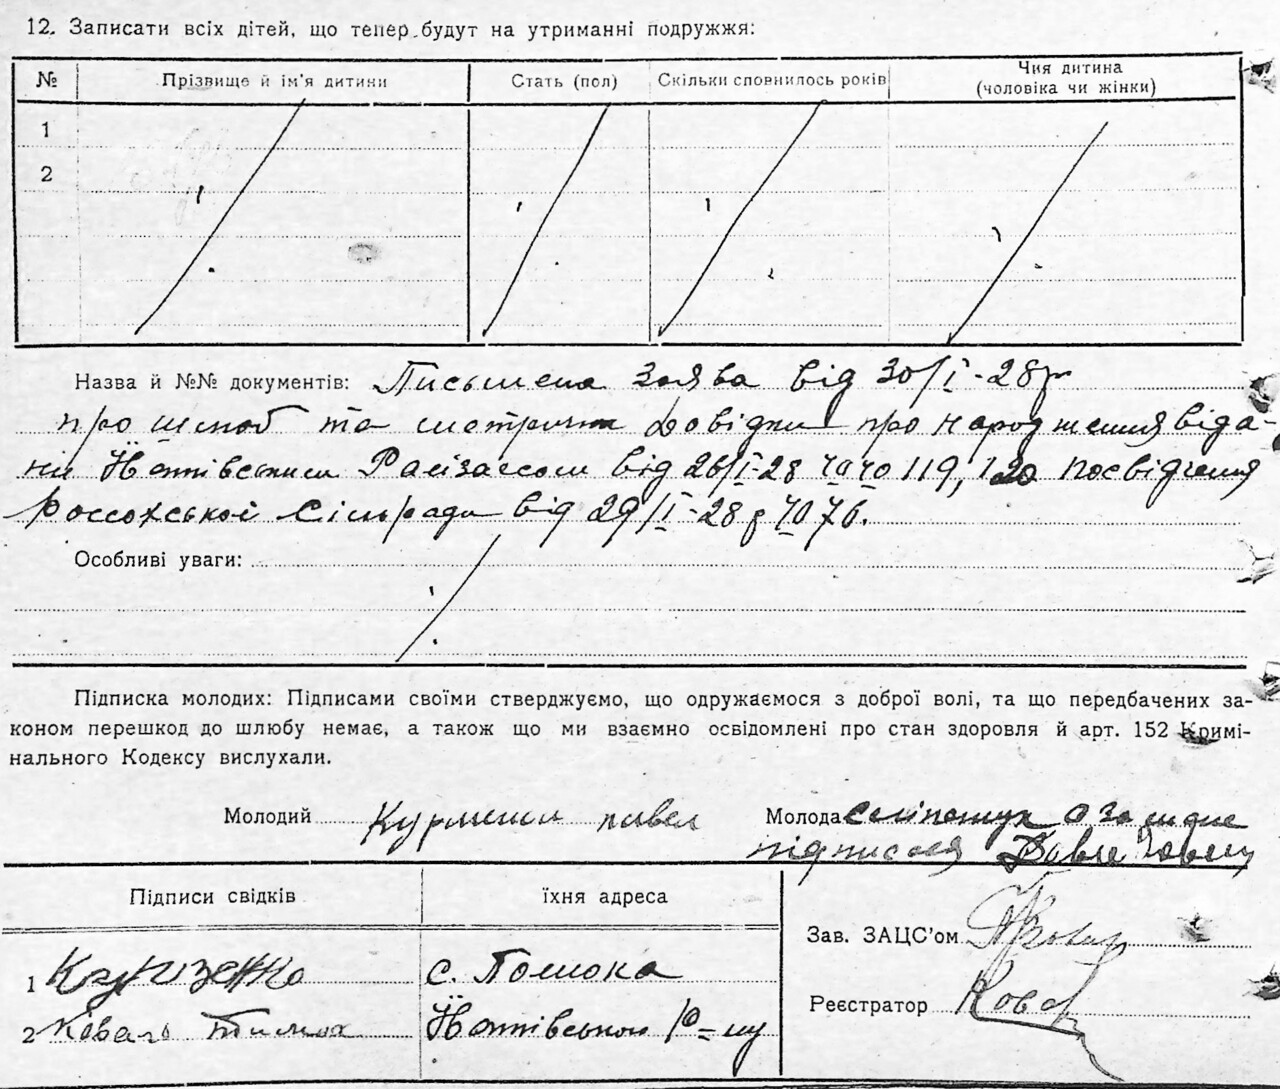 12. Записати всіх дітей, що тепер будут на утриманні подружжя:
№ Прізвище й ім'я дитини Стать (пол) Скільки сповнилось років Чия дитина (чоловіка чи жінки)
1
2
Назва й №№ документів: Письмена заява від 30/I-28р
про шлюб та метричні довідки про народження вида-
ні від 26/I-28 №№ 119, 120 посвідчення
Россохської Сільради від 29/I-28р № 76.
Особливі уваги:
Підписка молодих: Підписами своїми стверджуємо, що одружаємося з доброї волі, та що передбачених за-
коном перешкод до шлюбу немає, а також що ми взаємно освідомлені про стан здоровля й арт. 152 Кримі-
нального Кодексу вислухали.
Молодий павел
Молода а за мене
підписался
Підписи свідків їхня адреса
Зав. ЗАЦС'ом
1 с. Помока
Реєстратор
2 Коваль Тимох